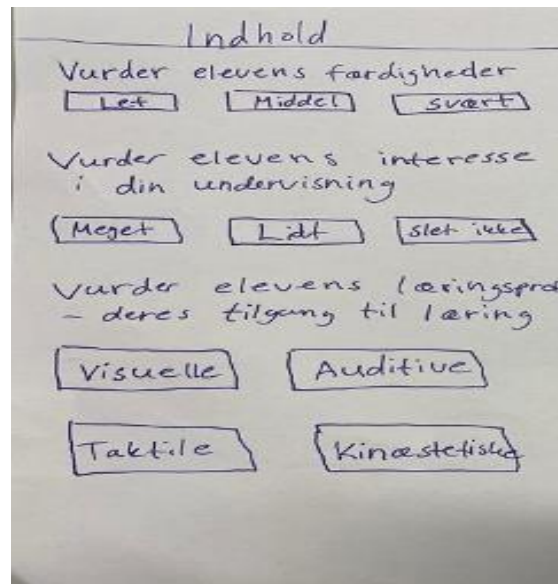 Indhold
Vurder elevens færdigheder
Let Middel svært
Vurder elevens interesse
i din undervisning
Meget Lidt slet ikke
Vurder elevens
- deres tilgang til læring
Visuelle Auditive
Taktile Kinæstetiske